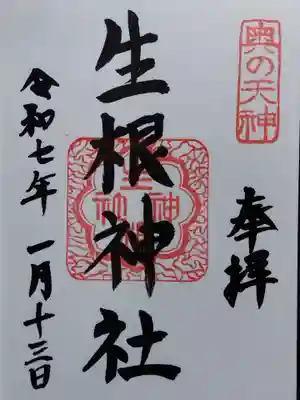 奥の天神
奉拝
生根神社
令和七年 一月十三日